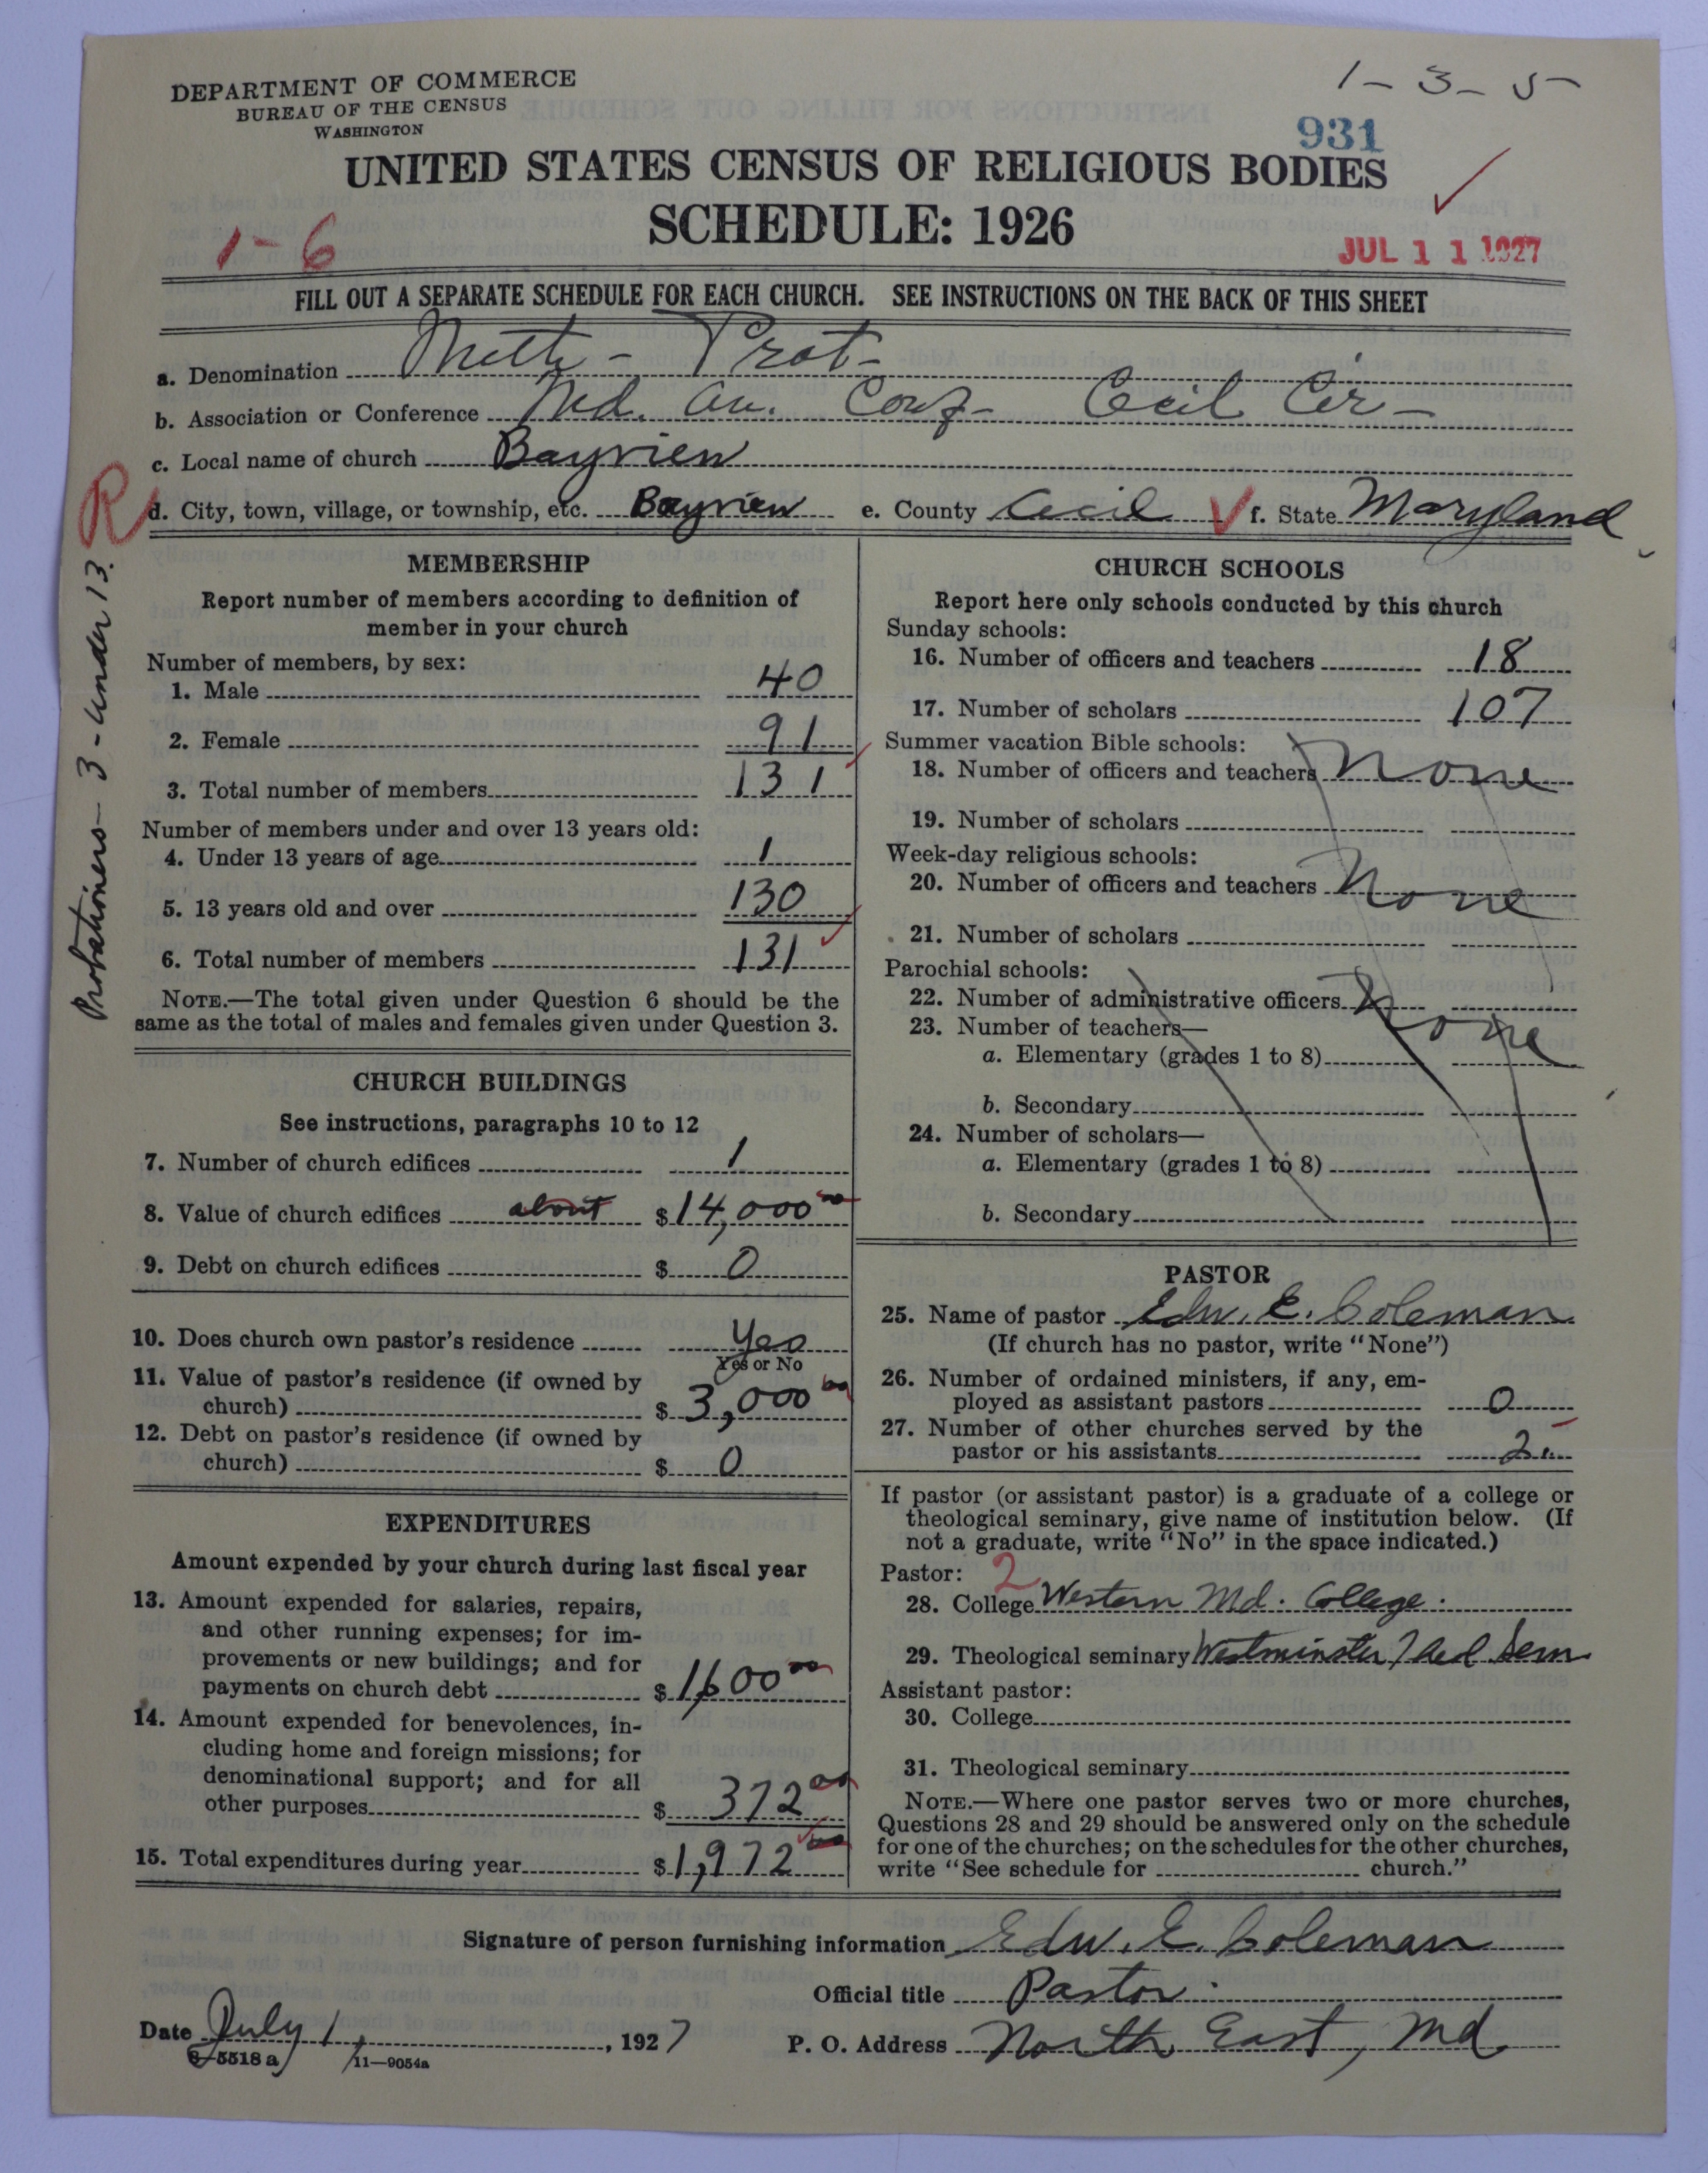 DEPARTMENT OF COMMERCE
BUREAU OF THE CENSUS
WASHINGTON
1-3-5-
931
UNITED STATES CENSUS OF RELIGIOUS BODIES
SCHEDULE: 1926
1-6
JUL 11 1927
FILL OUT A SEPARATE SCHEDULE FOR EACH CHURCH. SEE INSTRUCTIONS ON THE BACK OF THIS SHEET
a. Denomination Meth- Prot-
b. Association or Conference Md. An. Conf- Cecil Cir-
c. Local name of church Bayview
R
d. City, town, village, or township, etc. Bayview e. County Cecil f. State Maryland
Probationers- 3 - under 13.
MEMBERSHIP
Report number of members according to definition of
member in your church
Number of members, by sex:
1. Male 40
2. Female 91
3. Total number of members 131
Number of members under and over 13 years old:
4. Under 13 years of age 1
5. 13 years old and over 130
6. Total number of members 131
NOTE.—The total given under Question 6 should be the
same as the total of males and females given under Question 3.
CHURCH BUILDINGS
See instructions, paragraphs 10 to 12
7. Number of church edifices 1
8. Value of church edifices about $14,000 00
9. Debt on church edifices $ 0
10. Does church own pastor's residence Yes
Yes or No
11. Value of pastor's residence (if owned by
church) $3,000 00
12. Debt on pastor's residence (if owned by
church) $ 0
EXPENDITURES
Amount expended by your church during last fiscal year
13. Amount expended for salaries, repairs,
and other running expenses; for im-
provements or new buildings; and for
payments on church debt $1,600 00
14. Amount expended for benevolences, in-
cluding home and foreign missions; for
denominational support; and for all
other purposes $ 372 00
15. Total expenditures during year $1,972 00
CHURCH SCHOOLS
Report here only schools conducted by this church
Sunday schools:
16. Number of officers and teachers 18
17. Number of scholars 107
Summer vacation Bible schools:
18. Number of officers and teachers None
19. Number of scholars
Week-day religious schools:
20. Number of officers and teachers None
21. Number of scholars
Parochial schools:
22. Number of administrative officers None
23. Number of teachers—
a. Elementary (grades 1 to 8)
b. Secondary
24. Number of scholars—
a. Elementary (grades 1 to 8)
b. Secondary
PASTOR
25. Name of pastor Edw. E. Coleman
(If church has no pastor, write "None")
26. Number of ordained ministers, if any, em-
ployed as assistant pastors 0
27. Number of other churches served by the
pastor or his assistants 2
If pastor (or assistant pastor) is a graduate of a college or
theological seminary, give name of institution below. (If
not a graduate, write "No" in the space indicated.)
Pastor: 2
28. College Western Md. College.
29. Theological seminary Westminster Theol Sem
Assistant pastor:
30. College
31. Theological seminary
NOTE.—Where one pastor serves two or more churches,
Questions 28 and 29 should be answered only on the schedule
for one of the churches; on the schedules for the other churches,
write "See schedule for church."
Signature of person furnishing information Edw. E. Coleman
Official title Pastor.
Date July 1, 1927 P. O. Address North East, Md
8-5518 a 11-9054a